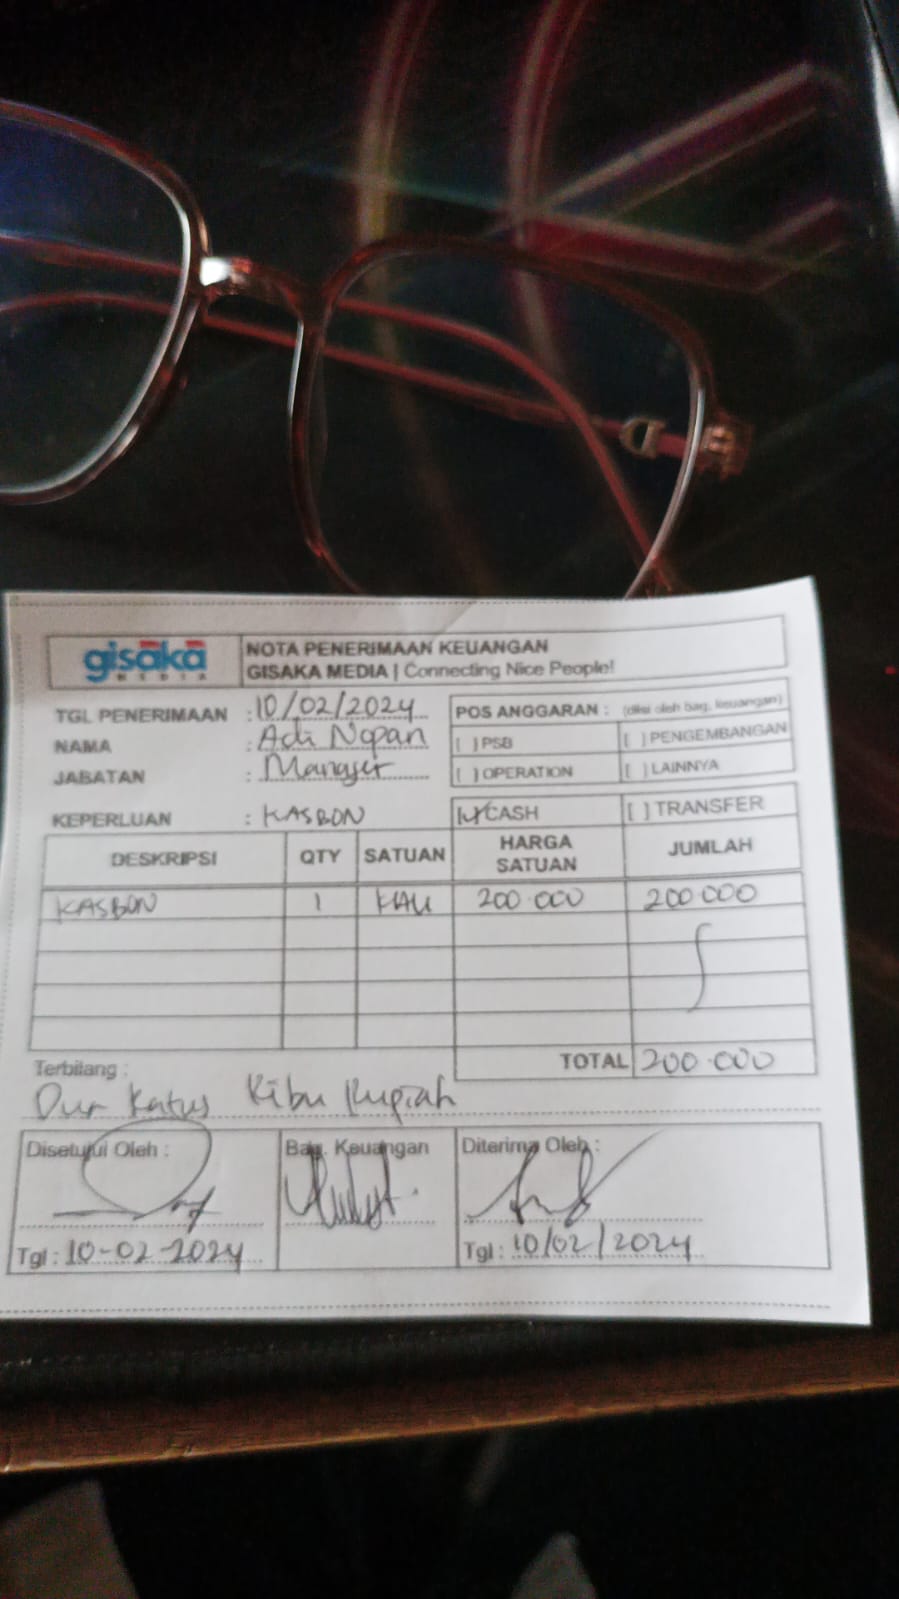 gisaka NOTA PENERIMAAN KEUANGAN
MEDIA GISAKA MEDIA | Connecting Nice People!
TGL PENERIMAAN : 10/02/2024
NAMA : Adi Nopan
JABATAN : Manajer
KEPERLUAN : KASBON
POS ANGGARAN : (diisi oleh bag. keuangan)
[ ] PSB [ ] PENGEMBANGAN
[ ] OPERATION [ ] LAINNYA
[✓] CASH [ ] TRANSFER
DESKRIPSI QTY SATUAN HARGA SATUAN JUMLAH
KASBON 1 KALI 200.000 200.000
TOTAL 200.000
Terbilang :
Dua Ratus Ribu Rupiah
Disetujui Oleh : Bag. Keuangan Diterima Oleh :
Tgl : 10-02-2024 Tgl : 10/02/2024